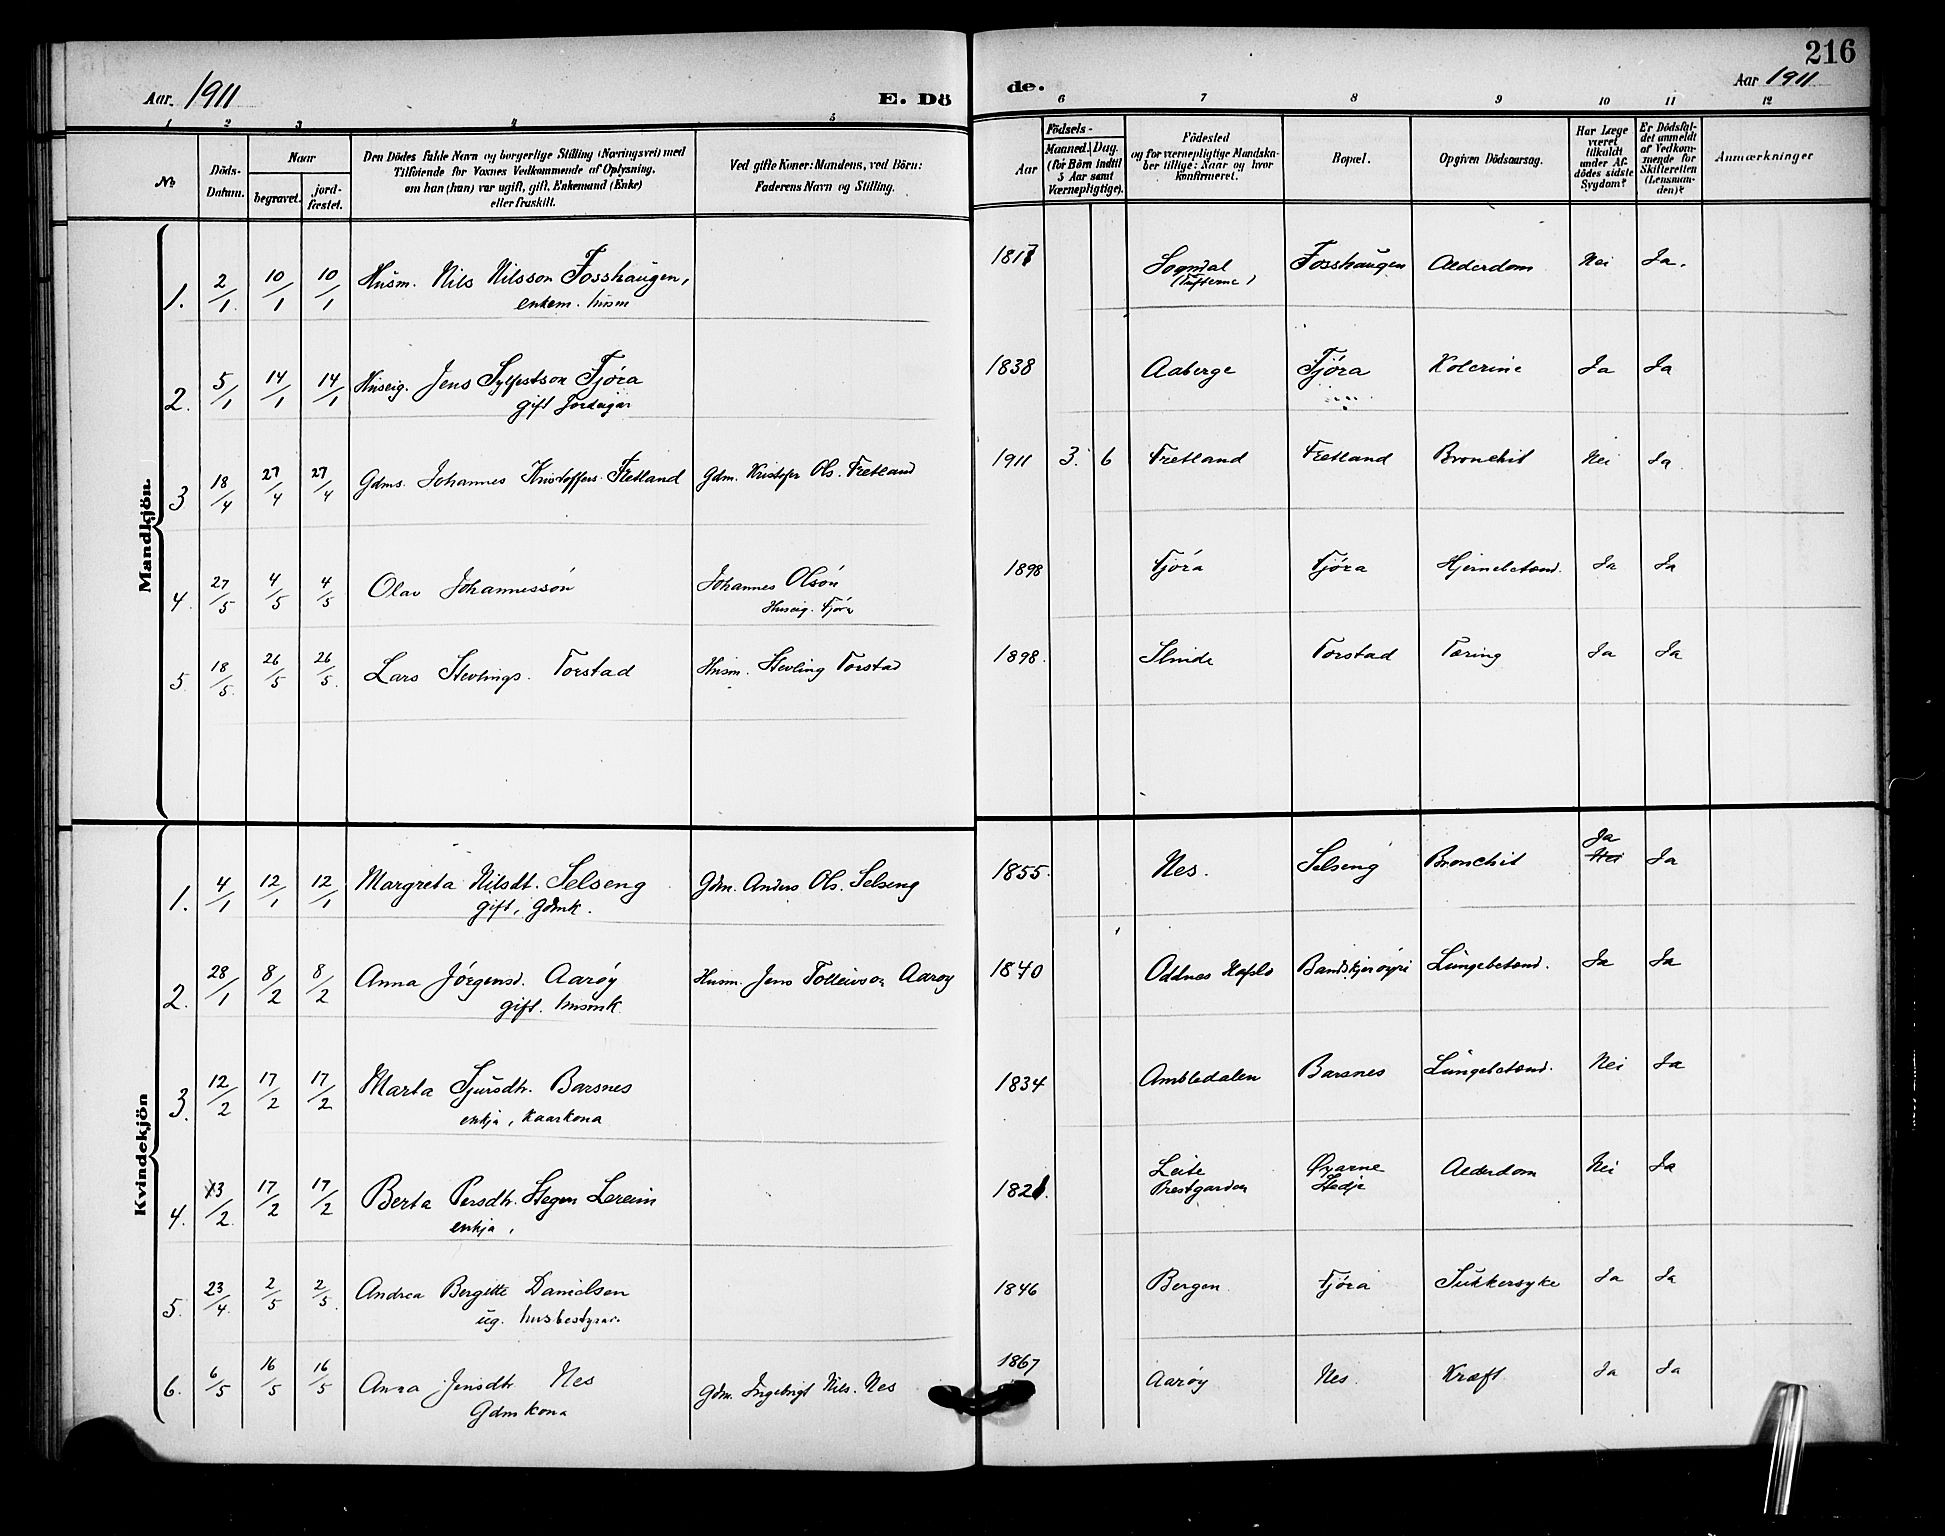 216
Aar. 1911
E. Dö
de.
Aar 1911
1 2 3 4 5 6 7 8 9 10 11 12
No
Döds-
Datum.
Naar
begravet.
jord-
fæstet.
Den Dödes fulde Navn og borgerlige Stilling (Næringsvei) med
Tilföiende for Voxnes Vedkommende af Oplysning,
om han (hun) var ugift, gift, Enkemand (Enke)
eller fraskilt.
Ved gifte Koner: Mandens, ved Börn:
Faderens Navn og Stilling.
Födsels-
Aar
Maaned. Dag.
(for Börn indtil
5 Aar samt
Værnepligtige).
Födested
og for værnepligtige Mandska-
ber tillige: Naar og hvor
konfirmeret.
Bopæl.
Opgiven Dödsaarsag.
Har Læge
været
tilkaldt
under Af-
dödes sidste
Sygdom?
Er Dödsfal-
det anmeldt
af Vedkom-
mende for
Skifteretten
(Lensman-
den)?
Anmærkninger
Mandkjön.
1. 2/1 10/1 10/1 Husm. Nils Nilsson Fosshaugen, 1817 Sogndal Fosshaugen Alderdom Nei Ja.
enkem. husm (Tufterne)
2. 5/1 14/1 14/1 Huseig. Jens Sylfestson Fjöra 1838 Aaberge Fjöra Kolerine Ja Ja
gift Jordeigar
3 18/4 27/4 27/4 Gdms. Johannes Kristoffers. Fretland Gdm. Kristofer Ols. Fretland 1911 3. 6 Fretland Fretland Bronchit Nei Ja.
4. 27/5 4/5 4/5 Olav Johannessön Johannes Olsön 1898 Fjöra Fjöra Hjernebetænd. Ja Ja
Huseig. Fjöra
5. 18/5. 26/5 26/5. Lars Stevlings. Torstad Husm. Stevling Torstad 1898. Slinde Torstad Tæring Ja Ja
Kvindekjön
1. 4/1 12/1 12/1 Margreta Nilsdt. Selseng Gdm. Anders Ols. Selseng 1855. Nes. Selseng Bronchit Ja Nei Ja
gift, Gdmk.
2. 28/1 8/2 8/2 Anna Jörgensd. Aaröy Husm. Jens Tolleivson Aaröy 1840 Oddnes Hafslo Lungebetænd. Ja Ja
gift. husmk.
3. 12/2 17/2 17/2 Marta Sjursdtr. Barsnes 1834 Ambledalen Barsnes Lungebetænd. Nei Ja
enkja, kaarkona
4. 13/2. 17/2 17/2 Berta Persdtr. Stegen Lereim 1821. Leite Øyarne Alderdom Nei Ja
enkja, Prestgarden Stedje
5. 23/4. 2/5 2/5. Andrea Bergitte Danielsen 1846 Bergen. Fjöra Sukkersyke Ja Ja
ug. husbestyrar.
6. 6/5 16/5 16/5 Anna Jensdtr. Nes Gdm. Ingebrigt Nils. Nes 1867 Aaröy Nes. Kræft Ja Ja
Gdmkona